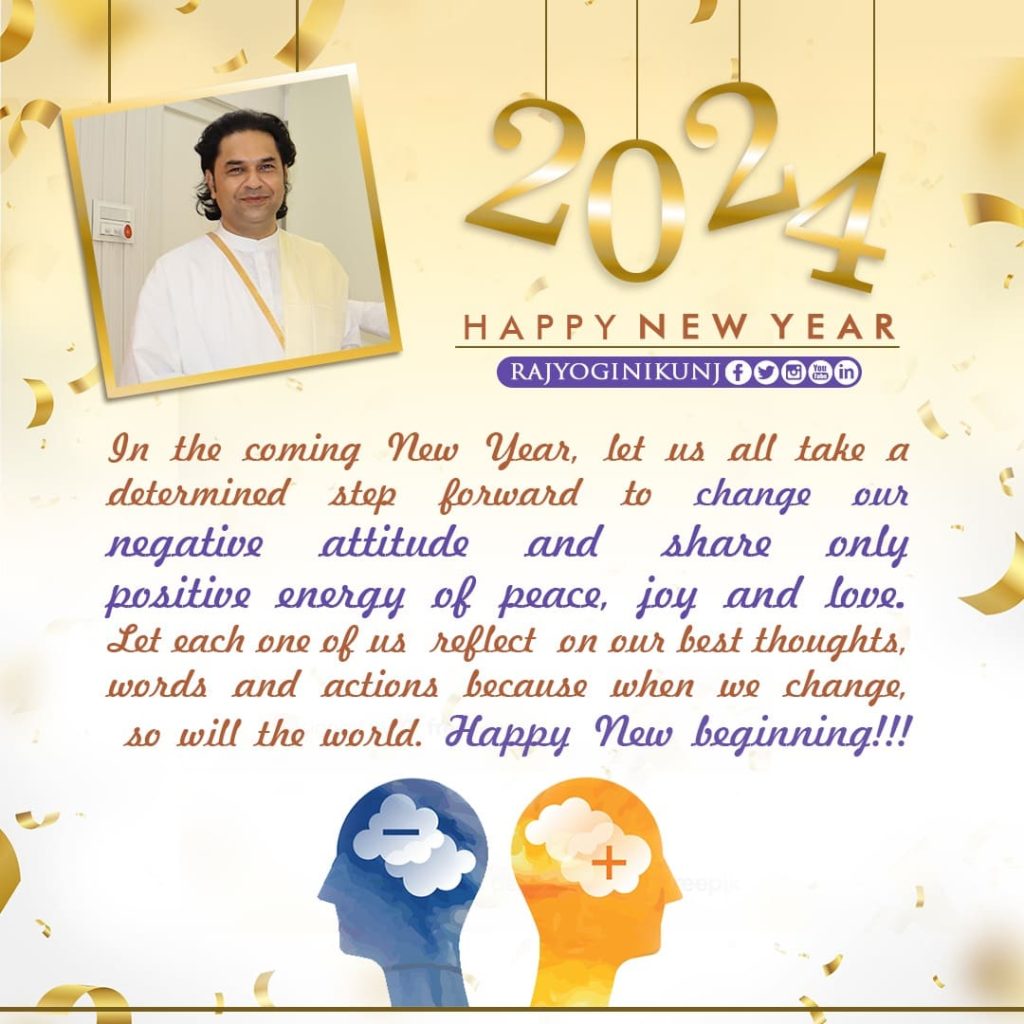 2024
HAPPY NEW YEAR
RAJYOGINIKUNJ
In the coming New Year, let us all take a
determined step forward to change our
negative attitude and share only
positive energy of peace, joy and love.
Let each one of us reflect on our best thoughts,
words and actions because when we change,
so will the world. Happy New beginning!!!